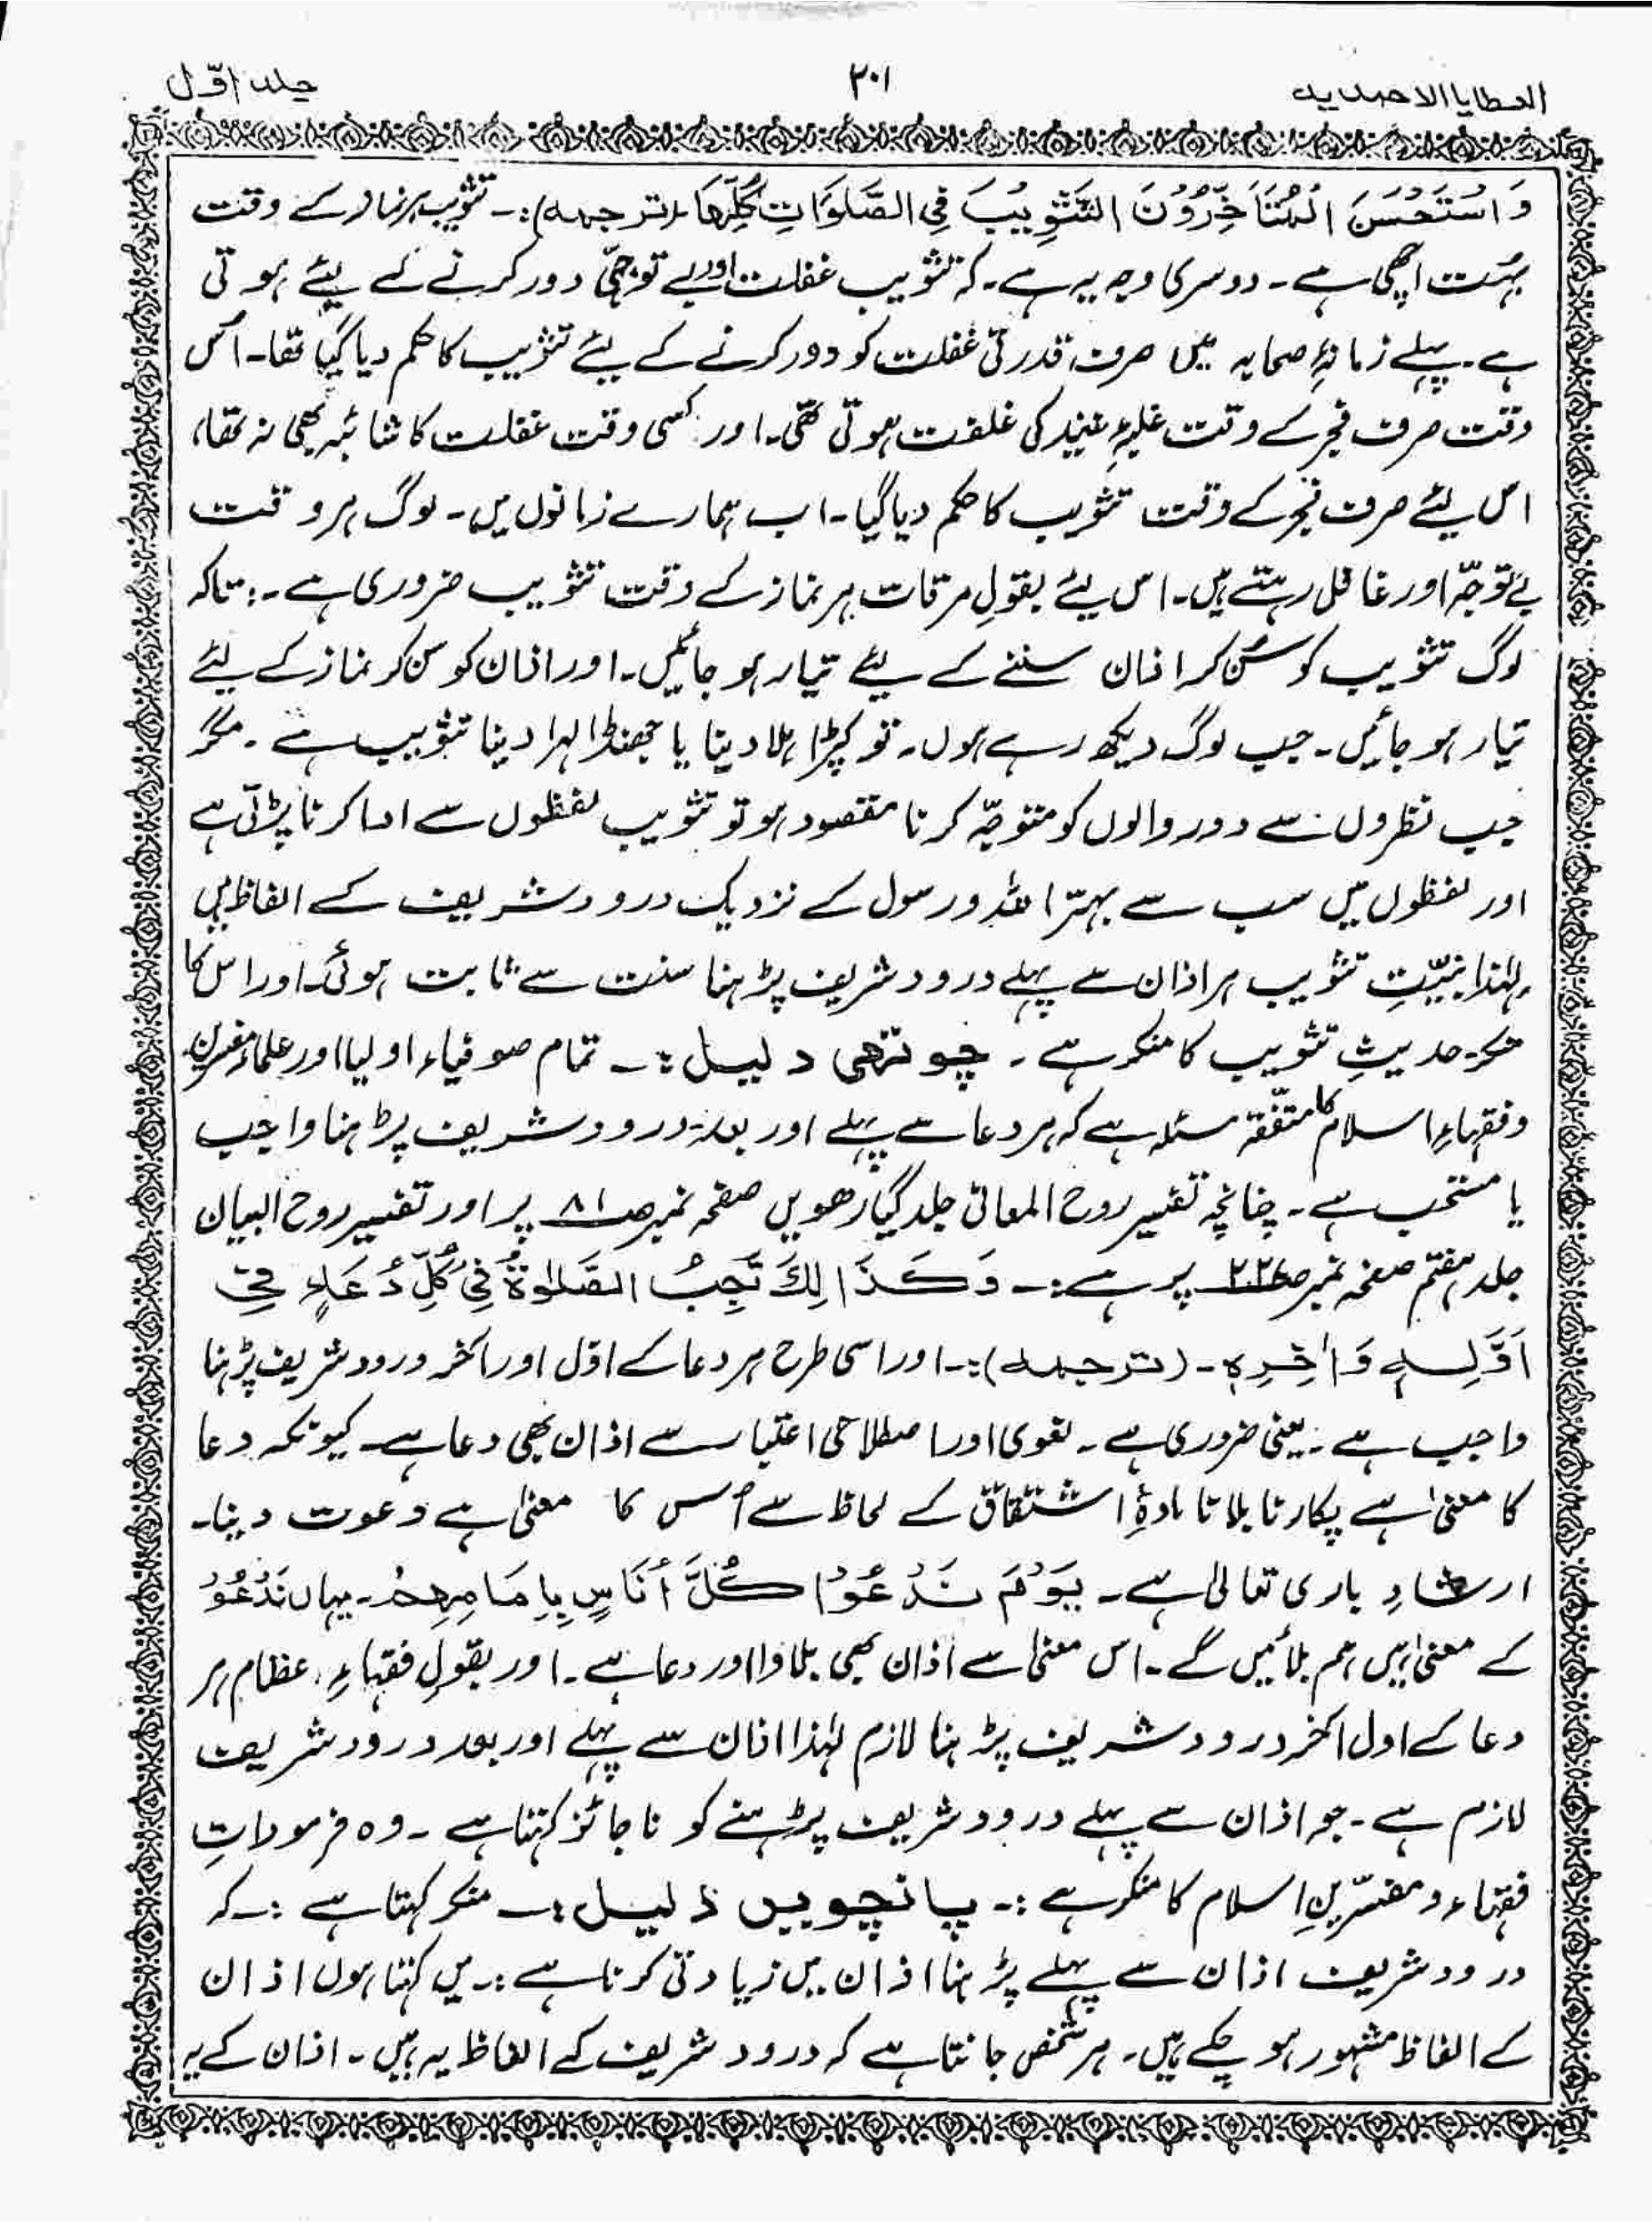 العطایا الاحمدیہ ۳۰۱ جلد اوّل
وَاسْتَحْسَنَ الْمُتَأَخِّرُوْنَ التَّثْوِیْبَ فِی الصَّلوَاتِ کُلِّھَا (ترجمہ):۔ تثویب ہر نماز کے وقت
بہُت اچھی ہے۔ دوسری وجہ یہ ہے۔ کہ تثویب غفلت اور بے توجہی دور کرنے کے لیئے ہوتی
ہے۔ پہلے زمانۂِ صحابہ میں صرف قدرتی غفلت کو دور کرنے کے لیئے تثویب کا حکم دیا گیا تھا۔ اُس
وقت صرف فجر کے وقت غلبۂِ نیند کی غلفت ہوتی تھی۔ اور کسی وقت غفلت کا شائبہ بھی نہ تھا،
اس لیئے صرف فجر کے وقت تثویب کا حکم دیا گیا۔ اب ہمارے زمانوں میں۔ لوگ ہر وقت
بے توجّہ اور غافل رہتے ہیں۔ اس لیئے بقولِ مرقات ہر نماز کے وقت تثویب ضروری ہے۔: تاکہ
لوگ تثویب کو سُن کر اذان سننے کے لیئے تیار ہو جائیں۔ اور اذان کو سن کر نماز کے لیئے
تیار ہو جائیں۔ جب لوگ دیکھ رہے ہوں۔ تو کپڑا ہلا دینا یا جھنڈا لہرا دینا تثویب ہے۔ مگر
جب نظروں سے دور والوں کو متوجّہ کرنا مقصود ہو تو تثویب لفظوں سے ادا کرنا پڑتی ہے
اور لفظوں میں سب سے بہتر اللہ ورسول کے نزدیک درود شریف کے الفاظ ہیں
لہٰذا بنیّتِ تثویب ہر اذان سے پہلے درود شریف پڑہنا سنت سے ثابت ہوئی۔ اور اس کا
منکر حدیثِ تثویب کا منکر ہے۔ چوتھی دلیل:۔ تمام صوفیاء اولیا اور علماءِ مفسرین
وفقہاءِ اسلام کا متّفقہ مسئلہ ہے کہ ہر دعا سے پہلے اور بعد درود شریف پڑہنا واجب
یا مستحب ہے۔ چنانچہ تفسیر روح المعانی جلد گیارھویں صفحہ نمبر صـ۸۱ پر اور تفسیر روح البیان
جلد ہفتم صفحہ نمبر صـ۲۲۶ پر ہے:۔ وَکَذَالِکَ تَجِبُ الصَّلوٰۃُ فِیْ کُلِّ دُعَاءٍ فِیْ
اَوَّلِہٖ وَاٰخِرِہٖ۔ (ترجمہ):۔ اور اسی طرح ہر دعا کے اوّل اور آخر درود شریف پڑہنا
واجب ہے۔ یعنی ضروری ہے۔ لغوی اور اصطلاحی اعتبار سے اذان بھی دعا ہے۔ کیونکہ دعا
کا معنیٰ ہے پکارنا بلانا مادۂِ اشتقاق کے لحاظ سے اُس کا معنیٰ ہے دعوت دینا۔
ارشادِ باری تعالیٰ ہے۔ یَوْمَ نَدْعُوْا کُلَّ اُنَاسٍ بِاِمَامِھِمْ۔ یہاں نَدْعُوْ
کے معنیٰ ہیں ہم بلائیں گے۔ اس معنیٰ سے اذان بھی بلاوا اور دعا ہے۔ اور بقولِ فقہاءِ عظام ہر
دعا کے اول آخر درود شریف پڑہنا لازم لہٰذا اذان سے پہلے اور بعد درود شریف
لازم ہے۔ جو اذان سے پہلے درود شریف پڑہنے کو ناجائز کہتا ہے۔ وہ فرموداتِ
فقہاء ومفسّرینِ اسلام کا منکر ہے:۔ پانچویں دلیل:۔ منکر کہتا ہے:۔ کہ
درود شریف اذان سے پہلے پڑہنا اذان میں زیادتی کرنا ہے:۔ میں کہتا ہوں اذان
کے الفاظ مشہور ہو چکے ہیں۔ ہر شخص جانتا ہے کہ درود شریف کے الفاظ یہ ہیں۔ اذان کے یہ